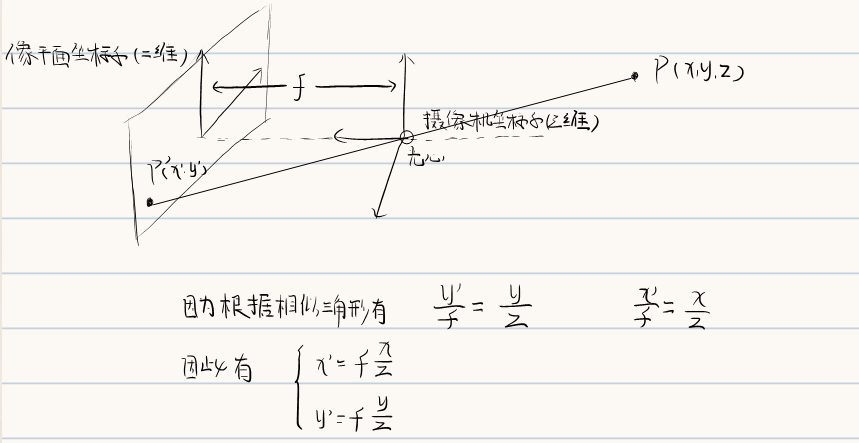 像平面坐标系(二维)
f
P(x,y,z)
摄像机坐标系(三维)
光心
P'(x',y')
因为根据相似三角形有 y'/f = y/z x'/f = x/z
因此有 { x' = f x/z
y' = f y/z